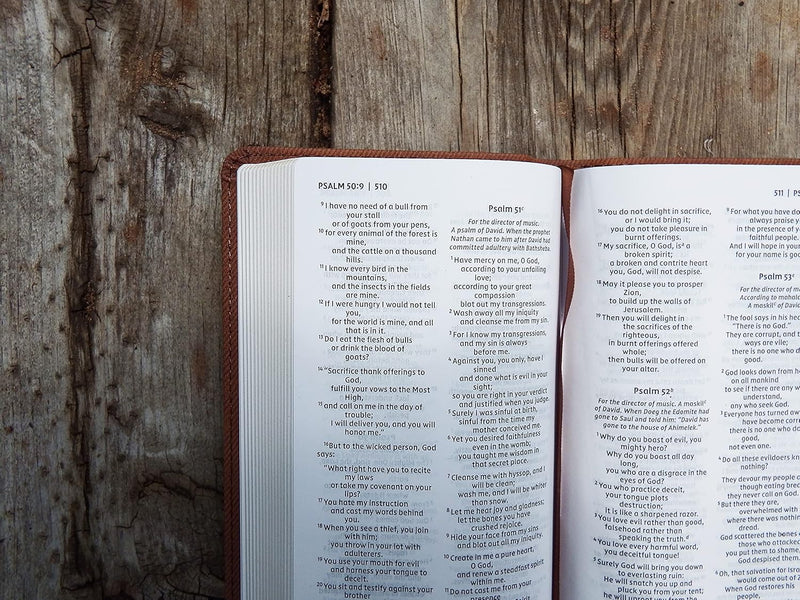 PSALM 50:9 | 510
9 I have no need of a bull from
your stall
or of goats from your pens,
10 for every animal of the forest is
mine,
and the cattle on a thousand
hills.
11 I know every bird in the
mountains,
and the insects in the fields
are mine.
12 If I were hungry I would not tell
you,
for the world is mine, and all
that is in it.
13 Do I eat the flesh of bulls
or drink the blood of
goats?
14 "Sacrifice thank offerings to
God,
fulfill your vows to the Most
High,
15 and call on me in the day of
trouble;
I will deliver you, and you will
honor me."
16 But to the wicked person, God
says:
"What right have you to recite
my laws
or take my covenant on your
lips?
17 You hate my instruction
and cast my words behind
you.
18 When you see a thief, you join
with him;
you throw in your lot with
adulterers.
19 You use your mouth for evil
and harness your tongue to
deceit.
20 You sit and testify against your
brother
Psalm 51c
For the director of music.
A psalm of David. When the prophet
Nathan came to him after David had
committed adultery with Bathsheba.
1 Have mercy on me, O God,
according to your unfailing
love;
according to your great
compassion
blot out my transgressions.
2 Wash away all my iniquity
and cleanse me from my sin.
3 For I know my transgressions,
and my sin is always
before me.
4 Against you, you only, have I
sinned
and done what is evil in your
sight;
so you are right in your verdict
and justified when you judge.
5 Surely I was sinful at birth,
sinful from the time my
mother conceived me.
6 Yet you desired faithfulness
even in the womb;
you taught me wisdom in
that secret place.
7 Cleanse me with hyssop, and I
will be clean;
wash me, and I will be whiter
than snow.
8 Let me hear joy and gladness;
let the bones you have
crushed rejoice.
9 Hide your face from my sins
and blot out all my iniquity.
10 Create in me a pure heart,
O God,
and renew a steadfast spirit
within me.
11 Do not cast me from your
presence
511 | PS
16 You do not delight in sacrifice,
or I would bring it;
you do not take pleasure in
burnt offerings.
17 My sacrifice, O God, is a
broken spirit;
a broken and contrite heart
you, God, will not despise.
18 May it please you to prosper
Zion,
to build up the walls of
Jerusalem.
19 Then you will delight in
the sacrifices of the
righteous,
in burnt offerings offered
whole;
then bulls will be offered on
your altar.
Psalm 52b
For the director of music. A maskil
of David. When Doeg the Edomite had
gone to Saul and told him: "David has
gone to the house of Ahimelek."
1 Why do you boast of evil, you
mighty hero?
Why do you boast all day
long,
you who are a disgrace in the
eyes of God?
2 You who practice deceit,
your tongue plots
destruction;
it is like a sharpened razor.
3 You love evil rather than good,
falsehood rather than
speaking the truth.
4 You love every harmful word,
you deceitful tongue!
5 Surely God will bring you down
to everlasting ruin:
He will snatch you up and
pluck you from your tent;
he will uproot you from the
9 For what you have do
always praise y
in the presence of yo
faithful people.
And I will hope in your
for your name is goo
Psalm 53c
For the director of m
According to mahala
A maskil of David.
1 The fool says in his hea
"There is no God."
They are corrupt, and t
ways are vile;
there is no one who d
good.
2 God looks down from he
on all mankind
to see if there are any w
understand,
any who seek God.
3 Everyone has turned aw
have become corru
there is no one who do
good,
not even one.
4 Do all these evildoers kn
nothing?
They devour my people a
though eating bread
they never call on God.
5 But there they are,
overwhelmed with
where there was nothin
dread.
God scattered the bones o
those who attacked
you put them to shame,
God despised them.
6 Oh, that salvation for Israe
would come out of Z
When God restores his
people,